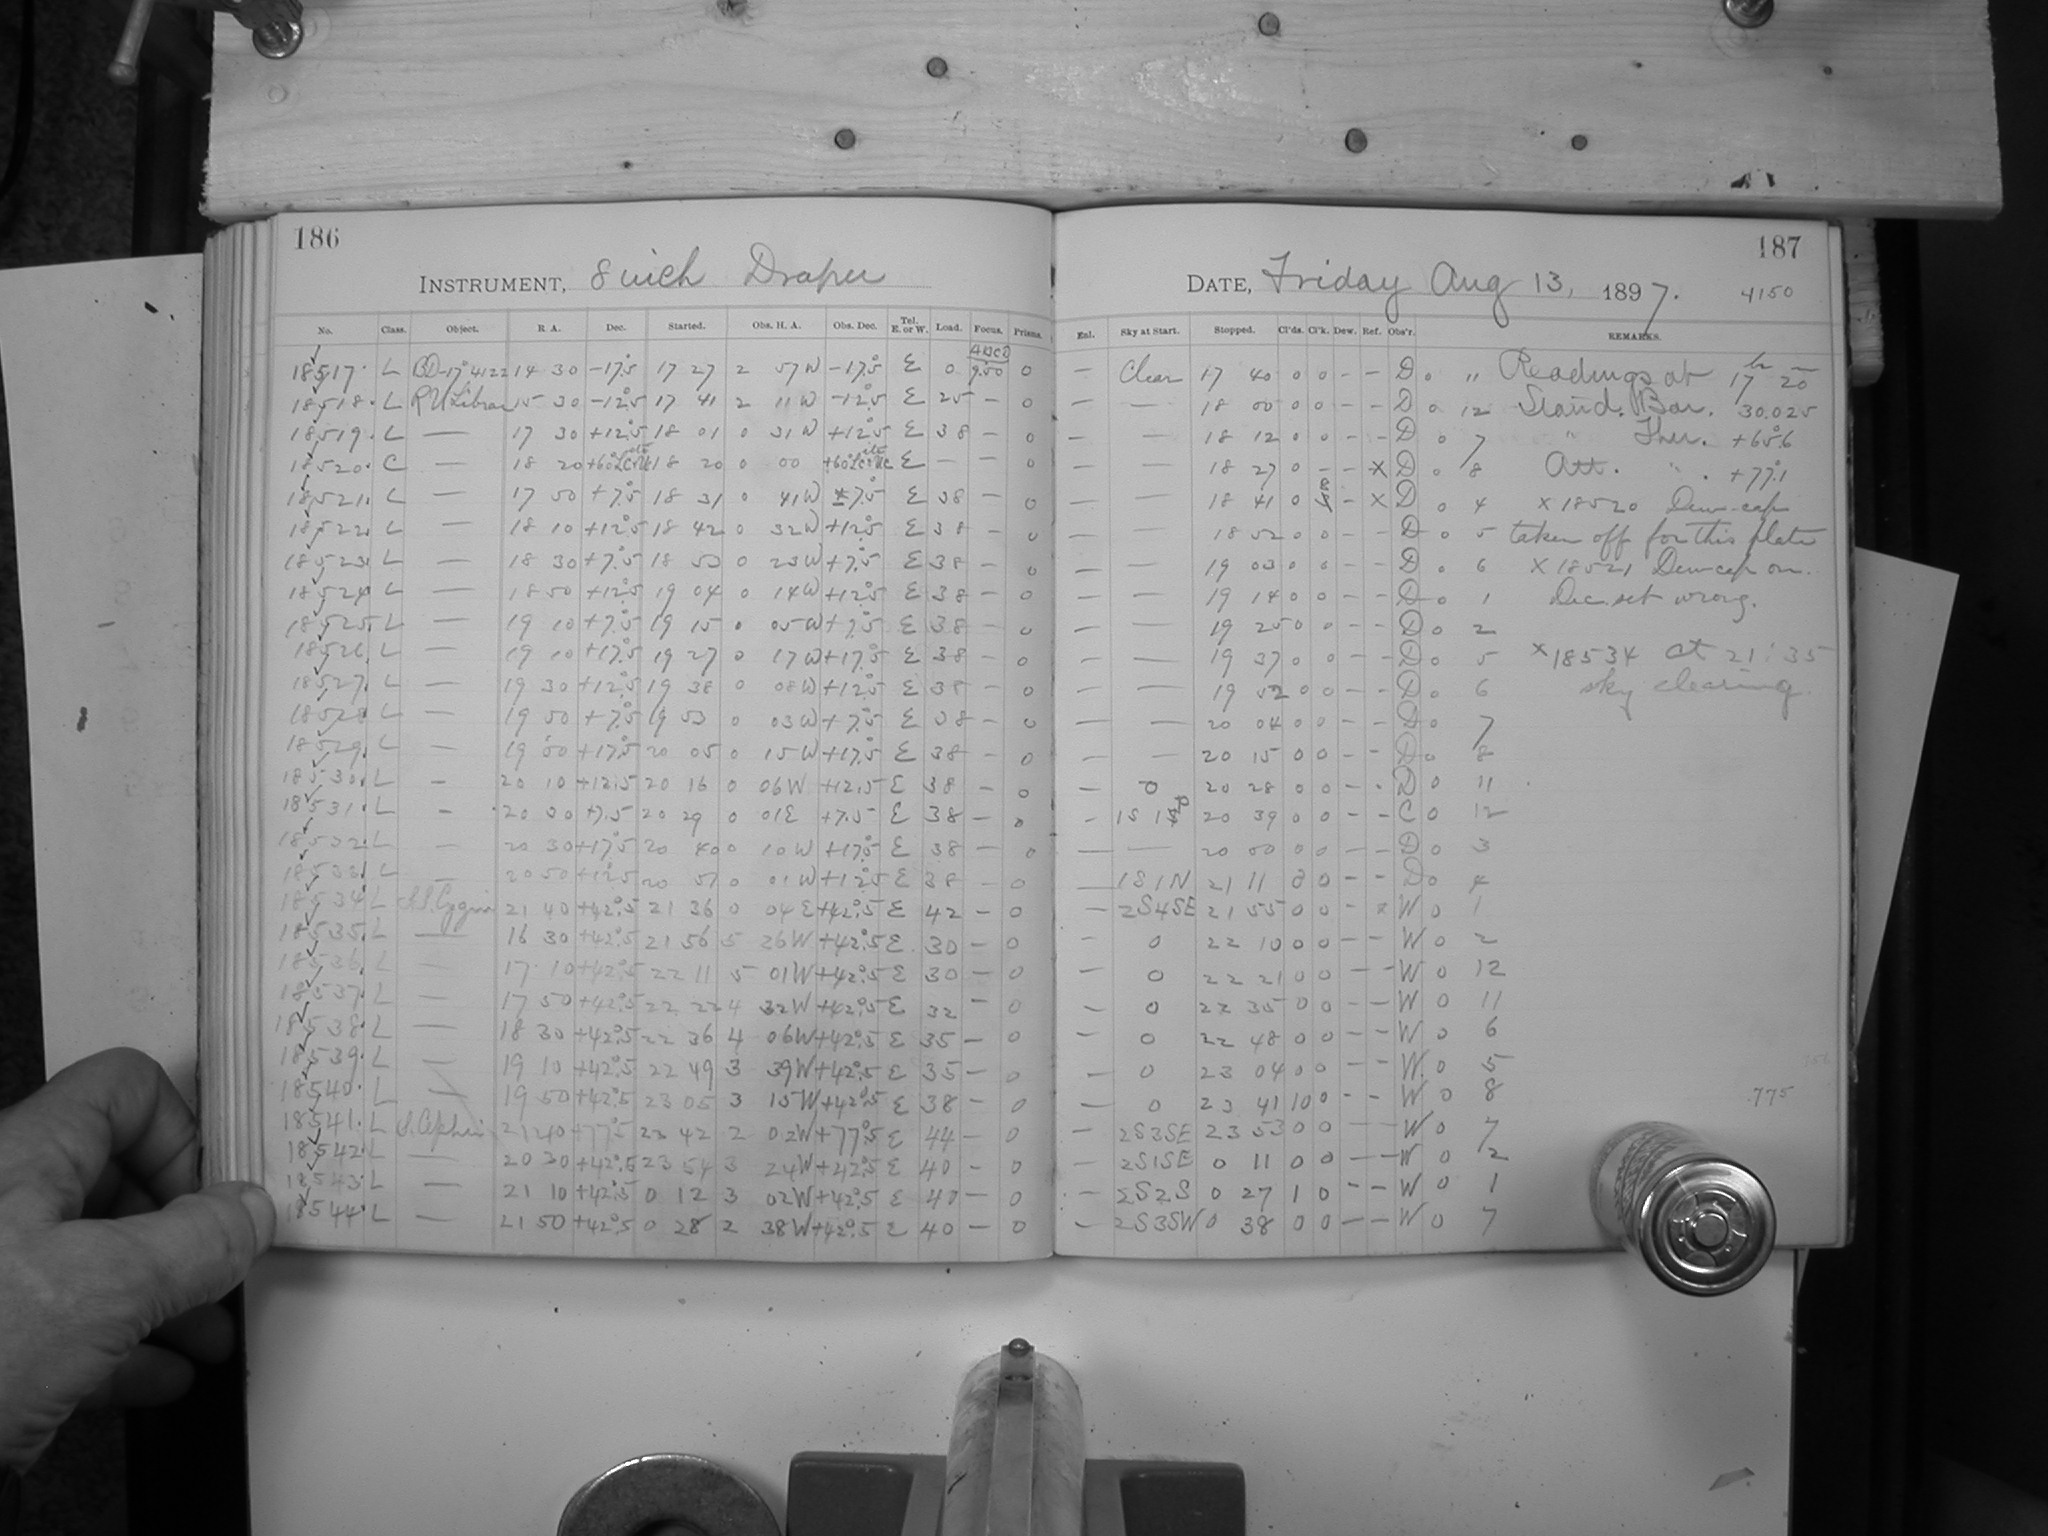 186
INSTRUMENT, 8 inch Draper
No. Class. Object. R A. Dec. Started. Obs. H. A. Obs. Dec. Tel. E. or W. Load. Focus. Prisms.
ABCD
18517. L BD-17°4122 14 30 -17°.5 17 27 2 57W -17°.5 E 0 9.50 0
18518. L RU Librae 15 30 -12°.5 17 41 2 11W -12°.5 E 25 - 0
18519. L — 17 30 +12°.5 18 01 0 31W +12°.5 E 38 - 0
18520. C — 18 20 +60° 18 20 0 00 +60° E — - 0
18521. L — 17 50 +7°.5 18 31 0 41W +7°.5 E 38 - 0
18522. L — 18 10 +12°.5 18 42 0 32W +12°.5 E 38 - 0
18523. L — 18 30 +7°.5 18 53 0 23W +7°.5 E 38 - 0
18524. L — 18 50 +12°.5 19 04 0 14W +12°.5 E 38 - 0
18525. L — 19 10 +7°.5 19 15 0 05W +7°.5 E 38 - 0
18526. L — 19 10 +17°.5 19 27 0 17W +17°.5 E 38 - 0
18527. L — 19 30 +12°.5 19 38 0 08W +12°.5 E 38 - 0
18528. L — 19 50 +7°.5 19 53 0 03W +7°.5 E 38 - 0
18529. L — 19 50 +17°.5 20 05 0 15W +17°.5 E 38 - 0
18530. L — 20 10 +12.5 20 16 0 06W +12.5 E 38 - 0
18531. L — 20 30 +7.5 20 29 0 01E +7.5 E 38 - 0
18532. L — 20 30 +17°.5 20 40 0 10W +17°.5 E 38 - 0
18533. L — 20 50 +12°.5 20 51 0 01W +12°.5 E 38 - 0
18534. L S.S. Cygni 21 40 +42°.5 21 36 0 04E +42°.5 E 42 - 0
18535. L — 16 30 +42°.5 21 56 5 26W +42°.5 E 30 - 0
18536. L — 17 10 +42°.5 22 11 5 01W +42°.5 E 30 - 0
18537. L — 17 50 +42°.5 22 22 4 32W +42°.5 E 32 - 0
18538. L — 18 30 +42°.5 22 36 4 06W +42°.5 E 35 - 0
18539. L — 19 10 +42°.5 22 49 3 39W +42°.5 E 35 - 0
18540. L — 19 50 +42°.5 23 05 3 15W +42°.5 E 38 - 0
18541. L S. Cephei 21 40 +77°.5 23 42 2 02W +77°.5 E 44 - 0
18542. L — 20 30 +42°.5 23 54 3 24W +42°.5 E 40 - 0
18543. L — 21 10 +42°.5 0 12 3 02W +42°.5 E 40 - 0
18544. L — 21 50 +42°.5 0 28 2 38W +42°.5 E 40 - 0
187
DATE, Friday Aug 13, 1897. 4150
Enl. Sky at Start. Stopped. Cl'ds. Cl'k. Dew. Ref. Obs'r. REMARKS.
— Clear 17 40 0 0 - - D 0 11 Readings at 17 hr 20
— — 18 00 0 0 - - D 0 12 Stand. Bar. 30.025
— — 18 12 0 0 - - D 0 7 " Ther. +65°.6
— — 18 27 0 - - X D 0 8 Att. " +77°.1
— — 18 41 0 - X D 0 4 X 18520 Dew-cap
— — 18 52 0 0 - - D 0 5 taken off for this plate
— — 19 03 0 0 - - D 0 6 X 18521 Dew cap on.
— — 19 14 0 0 - - D 0 1 Dec. set wrong.
— — 19 25 0 0 - - D 0 2
— — 19 37 0 0 - - D 0 5 X 18534 at 21:35
— — 19 52 0 0 - - D 0 6 sky clearing.
— — 20 04 0 0 - - D 0 7
— — 20 15 0 0 - - D 0 8
— 0 20 28 0 0 - - D 0 11
— 1S1 20 39 0 0 - - C 0 12
— — 20 50 0 0 - - D 0 3
— 1S1N 21 11 0 0 - - D 0 4
— 2S4SE 21 55 0 0 - x W 0 1
— 0 22 10 0 0 - - W 0 2
— 0 22 21 0 0 - - W 0 12
— 0 22 35 0 0 - - W 0 11
— 0 22 48 0 0 - - W 0 6
— 0 23 04 0 0 - - W 0 5
— 0 23 41 10 0 - - W 0 8 775
— 2S3SE 23 53 0 0 - - W 0 7
— 2S1SE 0 11 0 0 - - W 0 2
— 2S2S 0 27 1 0 - - W 0 1
— 2S3SW 0 38 0 0 - - W 0 7